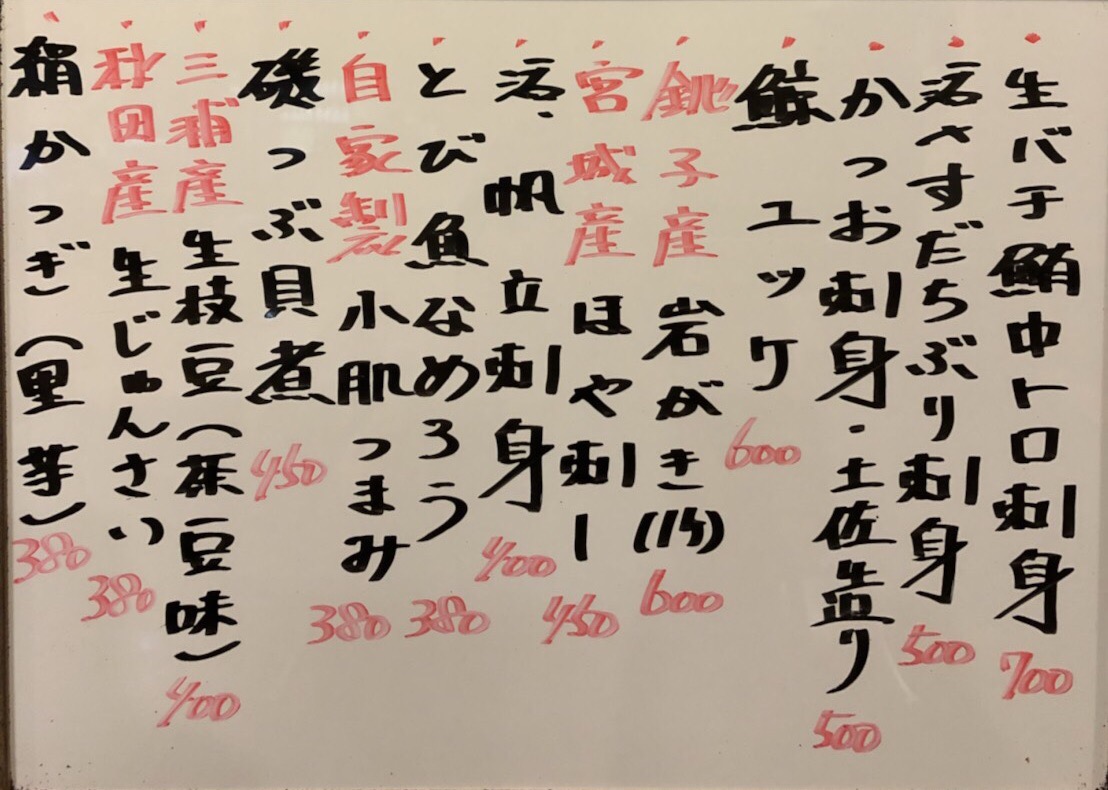 ・生バチ鮪中トロ刺身 700
・活さすだちぶり刺身 500
・かつお刺身・土佐造り 500
・鯨ユッケ 600
・銚子産 岩がき(1ケ) 600
・宮城産 ほや刺し 450
・活、帆立刺身 400
・とび魚なめろう 380
・自家製 小肌つまみ 380
・磯つぶ貝煮 450
・三浦産 生枝豆(茶豆味) 400
・秋田産 生じゅんさい 380
・絹かつぎ(里芋) 380